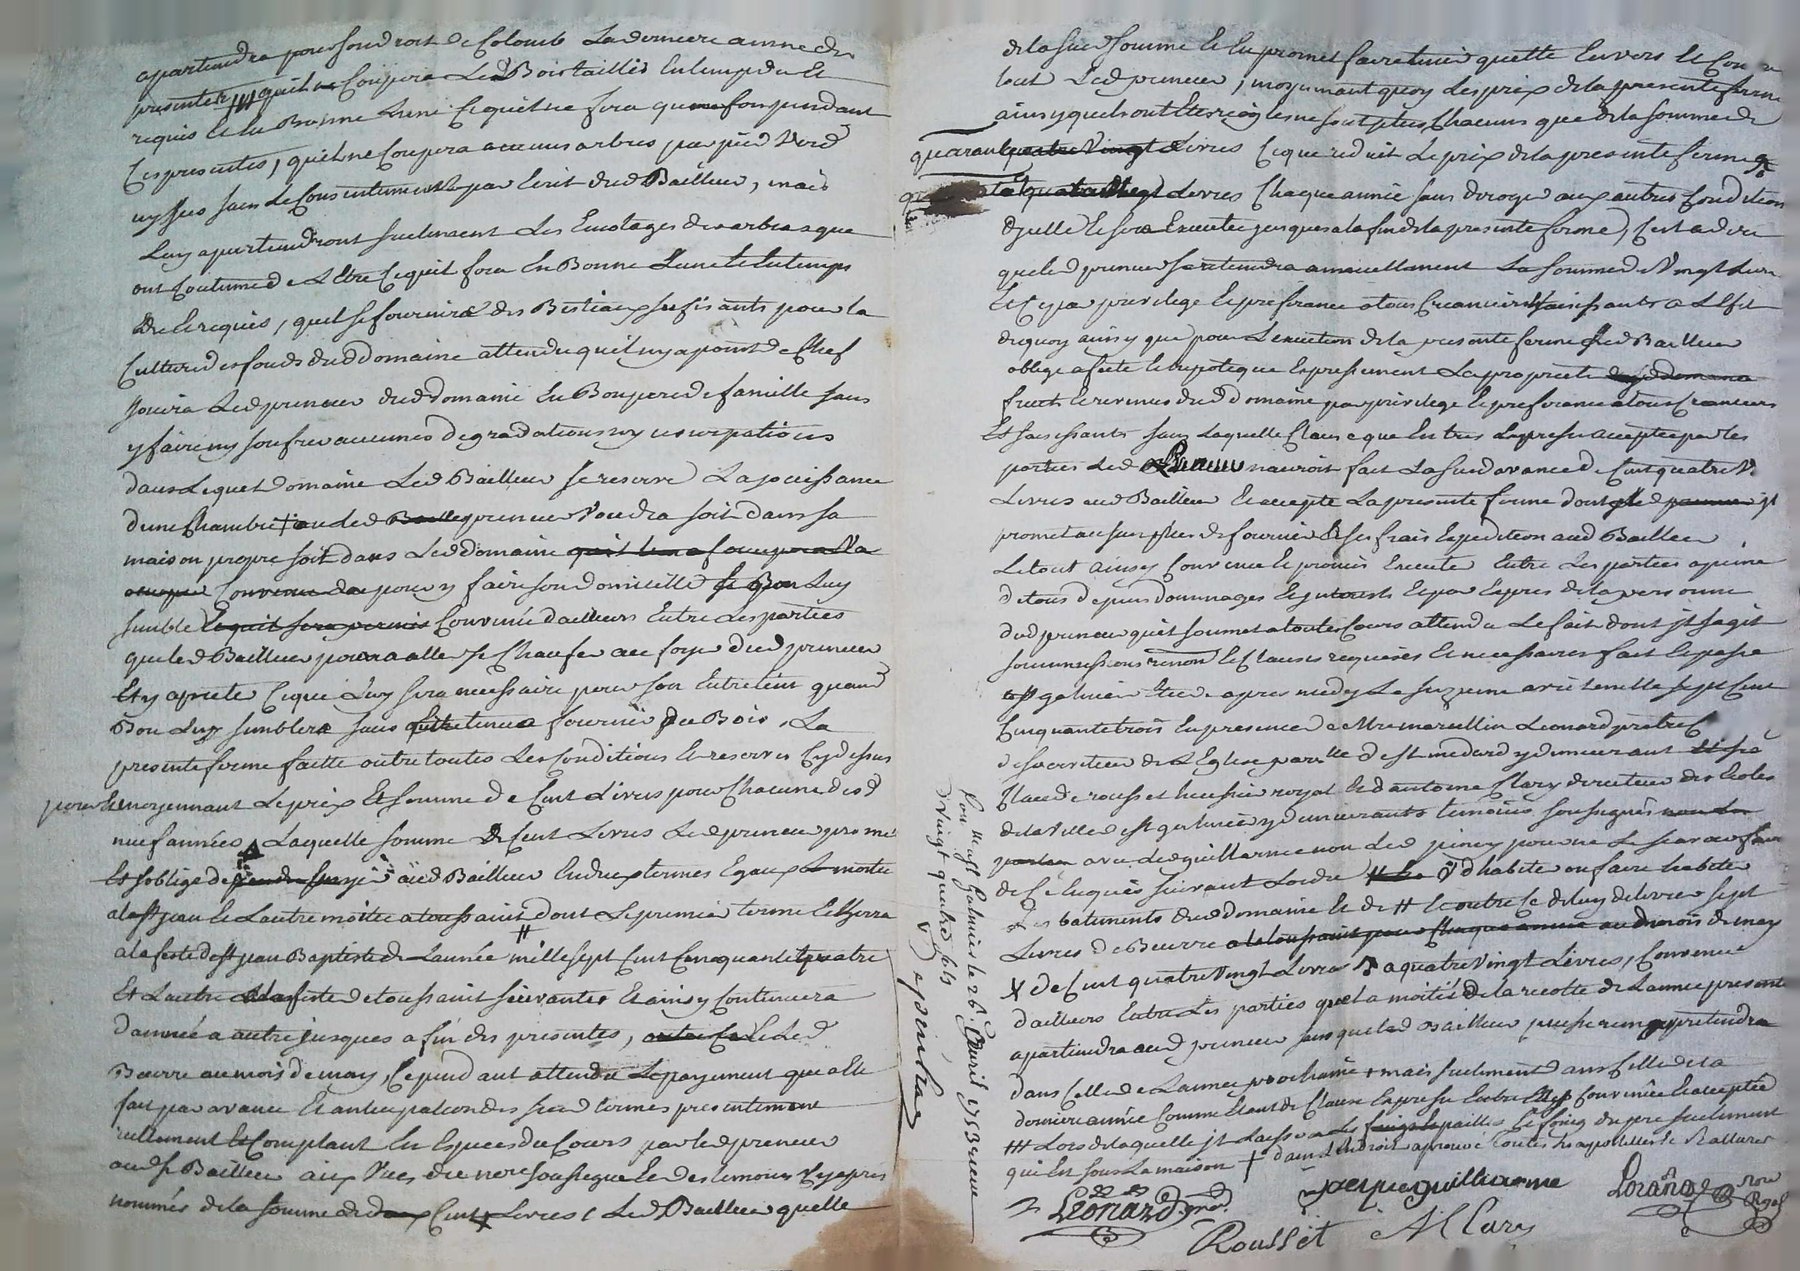 apartiendra pour son droit de Colomb La derniere année des
presentes /// quil ne Coupera Led Bois taillis En temps du Et
requis Et en Bonne Lune Ce quil ne fera qu'une fois pendant
Ces presentes, quil ne Coupera aucuns arbres par pied Verd
ny secs sans Le Consentement par Ecrit dud Bailleur, mais
Luy apartiendront seulement Les Emotages des arbres que
ont Coutume de L'Etre Ce quil fera En Bonne Lune Et En temps
du Et requis, quil se fournira des Bestiaux sufisants pour la
Culture des fonds dud domaine attendu quil ny a point de Chef
Jouira Led preneur dud domaine En Bon pere de famille sans
y faire ny soufrir aucunes degradations ny usurpations
dans Lequel domaine Led Bailleur se reserve La jouissance
d'une Chambre + ou led preneur Voudra soit dans sa
maison propre soit dans Led domaine
pour y faire son domicille Luy
semble Convenu d'ailleurs Entre Les parties
que led Bailleur poura aller se Chaufer au foyer dud preneur
Et y apreter Ce qui Luy sera necessaire pour son Entretient quand
Bon Luy semblera sans fournir du Bois, La
presente ferme faitte outre toutes Les Conditions Et reserves Cy dessus
moyennant Le prix Et somme de Cent Livres pour Chacune desd
neuf années, Laquelle somme de Cent Livres Led preneur promet
Et s'oblige de aud Bailleur En deux termes Egaux La moitié
a la st jean Et L'autre moitié a toussaint dont Le premier terme Echerra
a la feste de st jean Baptiste de L'année mille sept Cent Cinquante quatre
Et L'autre a la feste de toussaint suivante Et ainsy Continuera
d'année a autre jusques a fin des presentes,
Beurre au mois de may, Cependant attendu Le payement que a Eté
fait par avance Et anticipation desd termes presentement
réellement Et Comptant En Especes du Cours par led preneur
aud sr Bailleur aux Vues de no.re soussigné Et des temoins Cy apres
nommés de la somme de Cent Livres, Led Bailleur quitte
de la sud somme Et En promet faire tenir quitte Envers Et Contre
tout Led preneur, moyennant quoy Les prix de la presente ferme
ainsy quels ont Eté reglés ne sont plus Chacuns que de la somme de
quarante Livres Ce que reduit Le prix de la presente ferme
Livres Chaque année sans deroger aux autres Conditions
d'ycelle Et sera Executée jusques a la fin de la presente ferme, C'est a dire
que led preneur se retiendra annuellement La somme de Vingt Livres
Et Ce par privilege Et preferance a tous Creanciers saisissants a L'Efet
de quoy ainsy que pour L'execution de la presente ferme Led Bailleur
oblige afecte Et hipoteque Expressément La proprieté
fruits Et revenus dud domaine par privilege Et preferance a tous Creanciers
Et saisissants sans Laquelle Clause que Entres Expresse acceptée par les
parties Led Preneur n'auroit fait La sud avance de Cent quatre V.
Livres aud Bailleur Et accepte La presente ferme dont
promet au surplus de fournir a ses frais Expedition aud Bailleur
Le tout ainsy Convenu Et promis Executer Entre Les parties a peine
de tous depens dommages Et Interests Et par Exprès de la personne
dud preneur qui s'y soumet a toutes Cours attendu Le fait dont jl s'agit
soumissions renon. Et Clauses requises Et necessaires fait Et passé
a st galmier Etude apres midy Le sixzieme avril mille sept Cent
Cinquante trois En presence de Mre marcellin Leonard prêtre
desserviteur de L'Eglise par.lle de st medard y demeurant
Claude rousset huissier royal Et d antoine Clary directeur des Ecoles
de la Ville de st galmier y demeurants temoins soussignés
avec led guillarme non led piney pour ne Le scavoir faire
de Ce Enquis suivant L'ordre d'habiter ou faire habiter
Les batiments dud domaine Et de # Et outre Ce de luy delivrer sept
Livres de Beurre
X de Cent quatre Vingt Livres a quatre Vingt Livres, Convenu
d'ailleurs Entre Les parties que La moitié de la recolte de L'année presente
apartiendra aud preneur sans que led Bailleur puisse rien y pretendre
dans Celle de L'année prochaine mais seulement dans Celle de la
derniere année Comme Etant de Clause Expresse Entre Eux Convenüe Et acceptée
### Lors de laquelle jl Laissera Les pailles Et foins dupere seulement
qui Est sous La maison + dans L'endroit aprouvé toutes Les apostilles Et Ratures
Leonard ptre jacque guillarme Loranor no.re Royal
Rousset A Clary
Con.lle a st Galmier le 26. Avril 1753 reçu
Vingt quatre sols